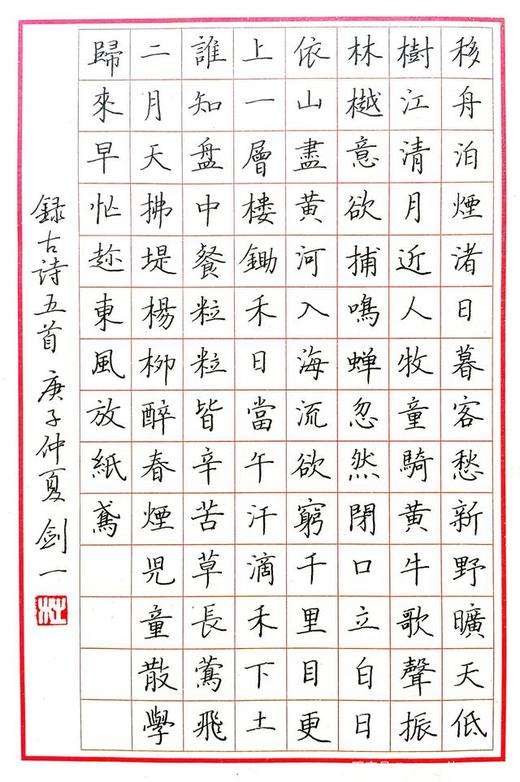 移舟泊煙渚日暮客愁新野曠天低
樹江清月近人牧童騎黃牛歌聲振
林樾意欲捕鳴蟬忽然閉口立白日
依山盡黃河入海流欲窮千里目更
上一層樓鋤禾日當午汗滴禾下土
誰知盤中餐粒粒皆辛苦草長鶯飛
二月天拂堤楊柳醉春煙児童散學
歸來早忙趂東風放紙鳶
録古詩五首 庚子仲夏 劍一